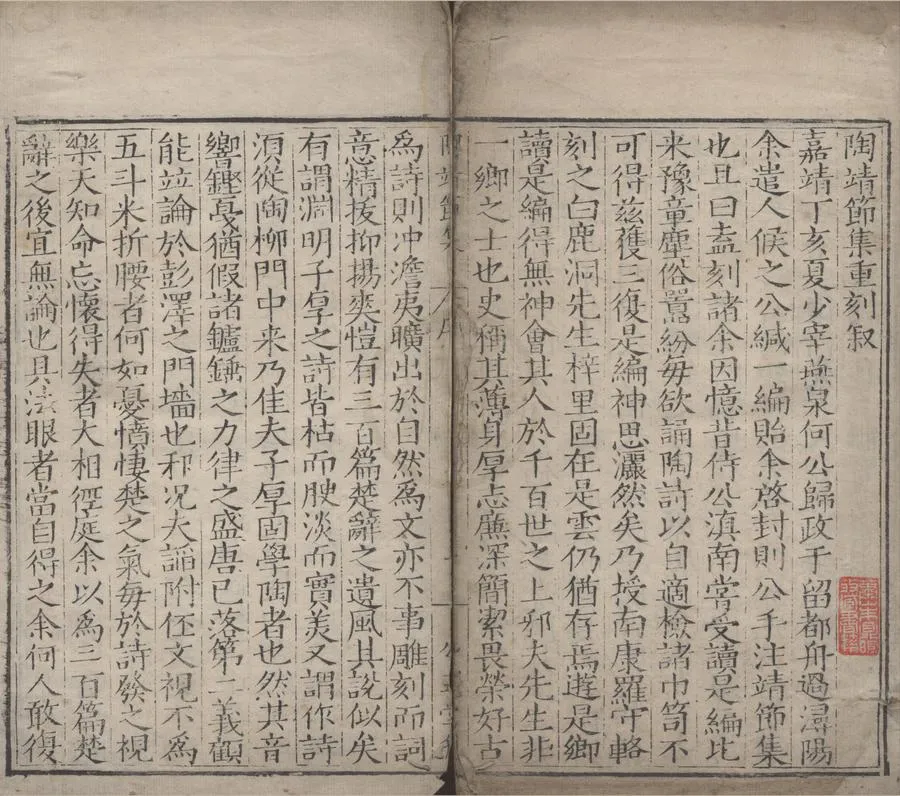 陶靖節集重刻叙
嘉靖丁亥夏少宰燕泉何公歸政于留都舟過潯陽
余遣人候之公緘一編貽余啓封則公手注靖節集
也且曰盍刻諸余因憶昔侍公滇南嘗受讀是編比
来豫章塵俗囂紛每欲誦陶詩以自適檢諸巾笥不
可得兹獲三復是編神思灑然矣乃授南康羅守輅
刻之白鹿洞先生梓里固在是雲仍猶存焉遊是鄉
讀是編得無神會其人於千百世之上邪夫先生非
一鄉之士也史稱其薄身厚志廉深簡絜畏榮好古
爲詩則冲澹夷曠出於自然爲文亦不事雕刻而詞
意精拔抑揚爽愷有三百篇楚辭之遺風其說似矣
有謂淵明子厚之詩皆枯而腴淡而實美又謂作詩
湏從陶柳門中来乃佳夫子厚固學陶者也然其音
響鏗戛猶假諸鑪錘之力律之盛唐已落第二義顧
能竝論於彭澤之門墻也邪况夫謟附伾文視不爲
五斗米折腰者何如憂憤悽楚之氣每於詩發之視
樂天知命忘懷得失者大相徑庭余以爲三百篇楚
辭之後宜無論也具法眼者當自得之余何人敢復